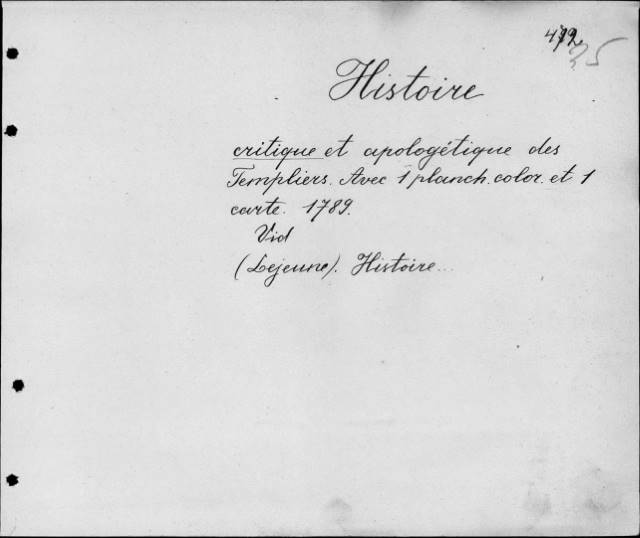 35
Histoire
critique et apologétique des
Templiers. Avec 1 planch. color. et 1
carte. 1789.
Vid
(Lejeune). Histoire...